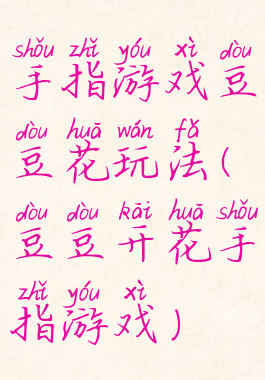 shǒu zhǐ yóu xì dòu
手指游戏豆
dòu huā wán fǎ
豆花玩法(
dòu dòu kāi huā shǒu
豆豆开花手
zhǐ yóu xì
指游戏)